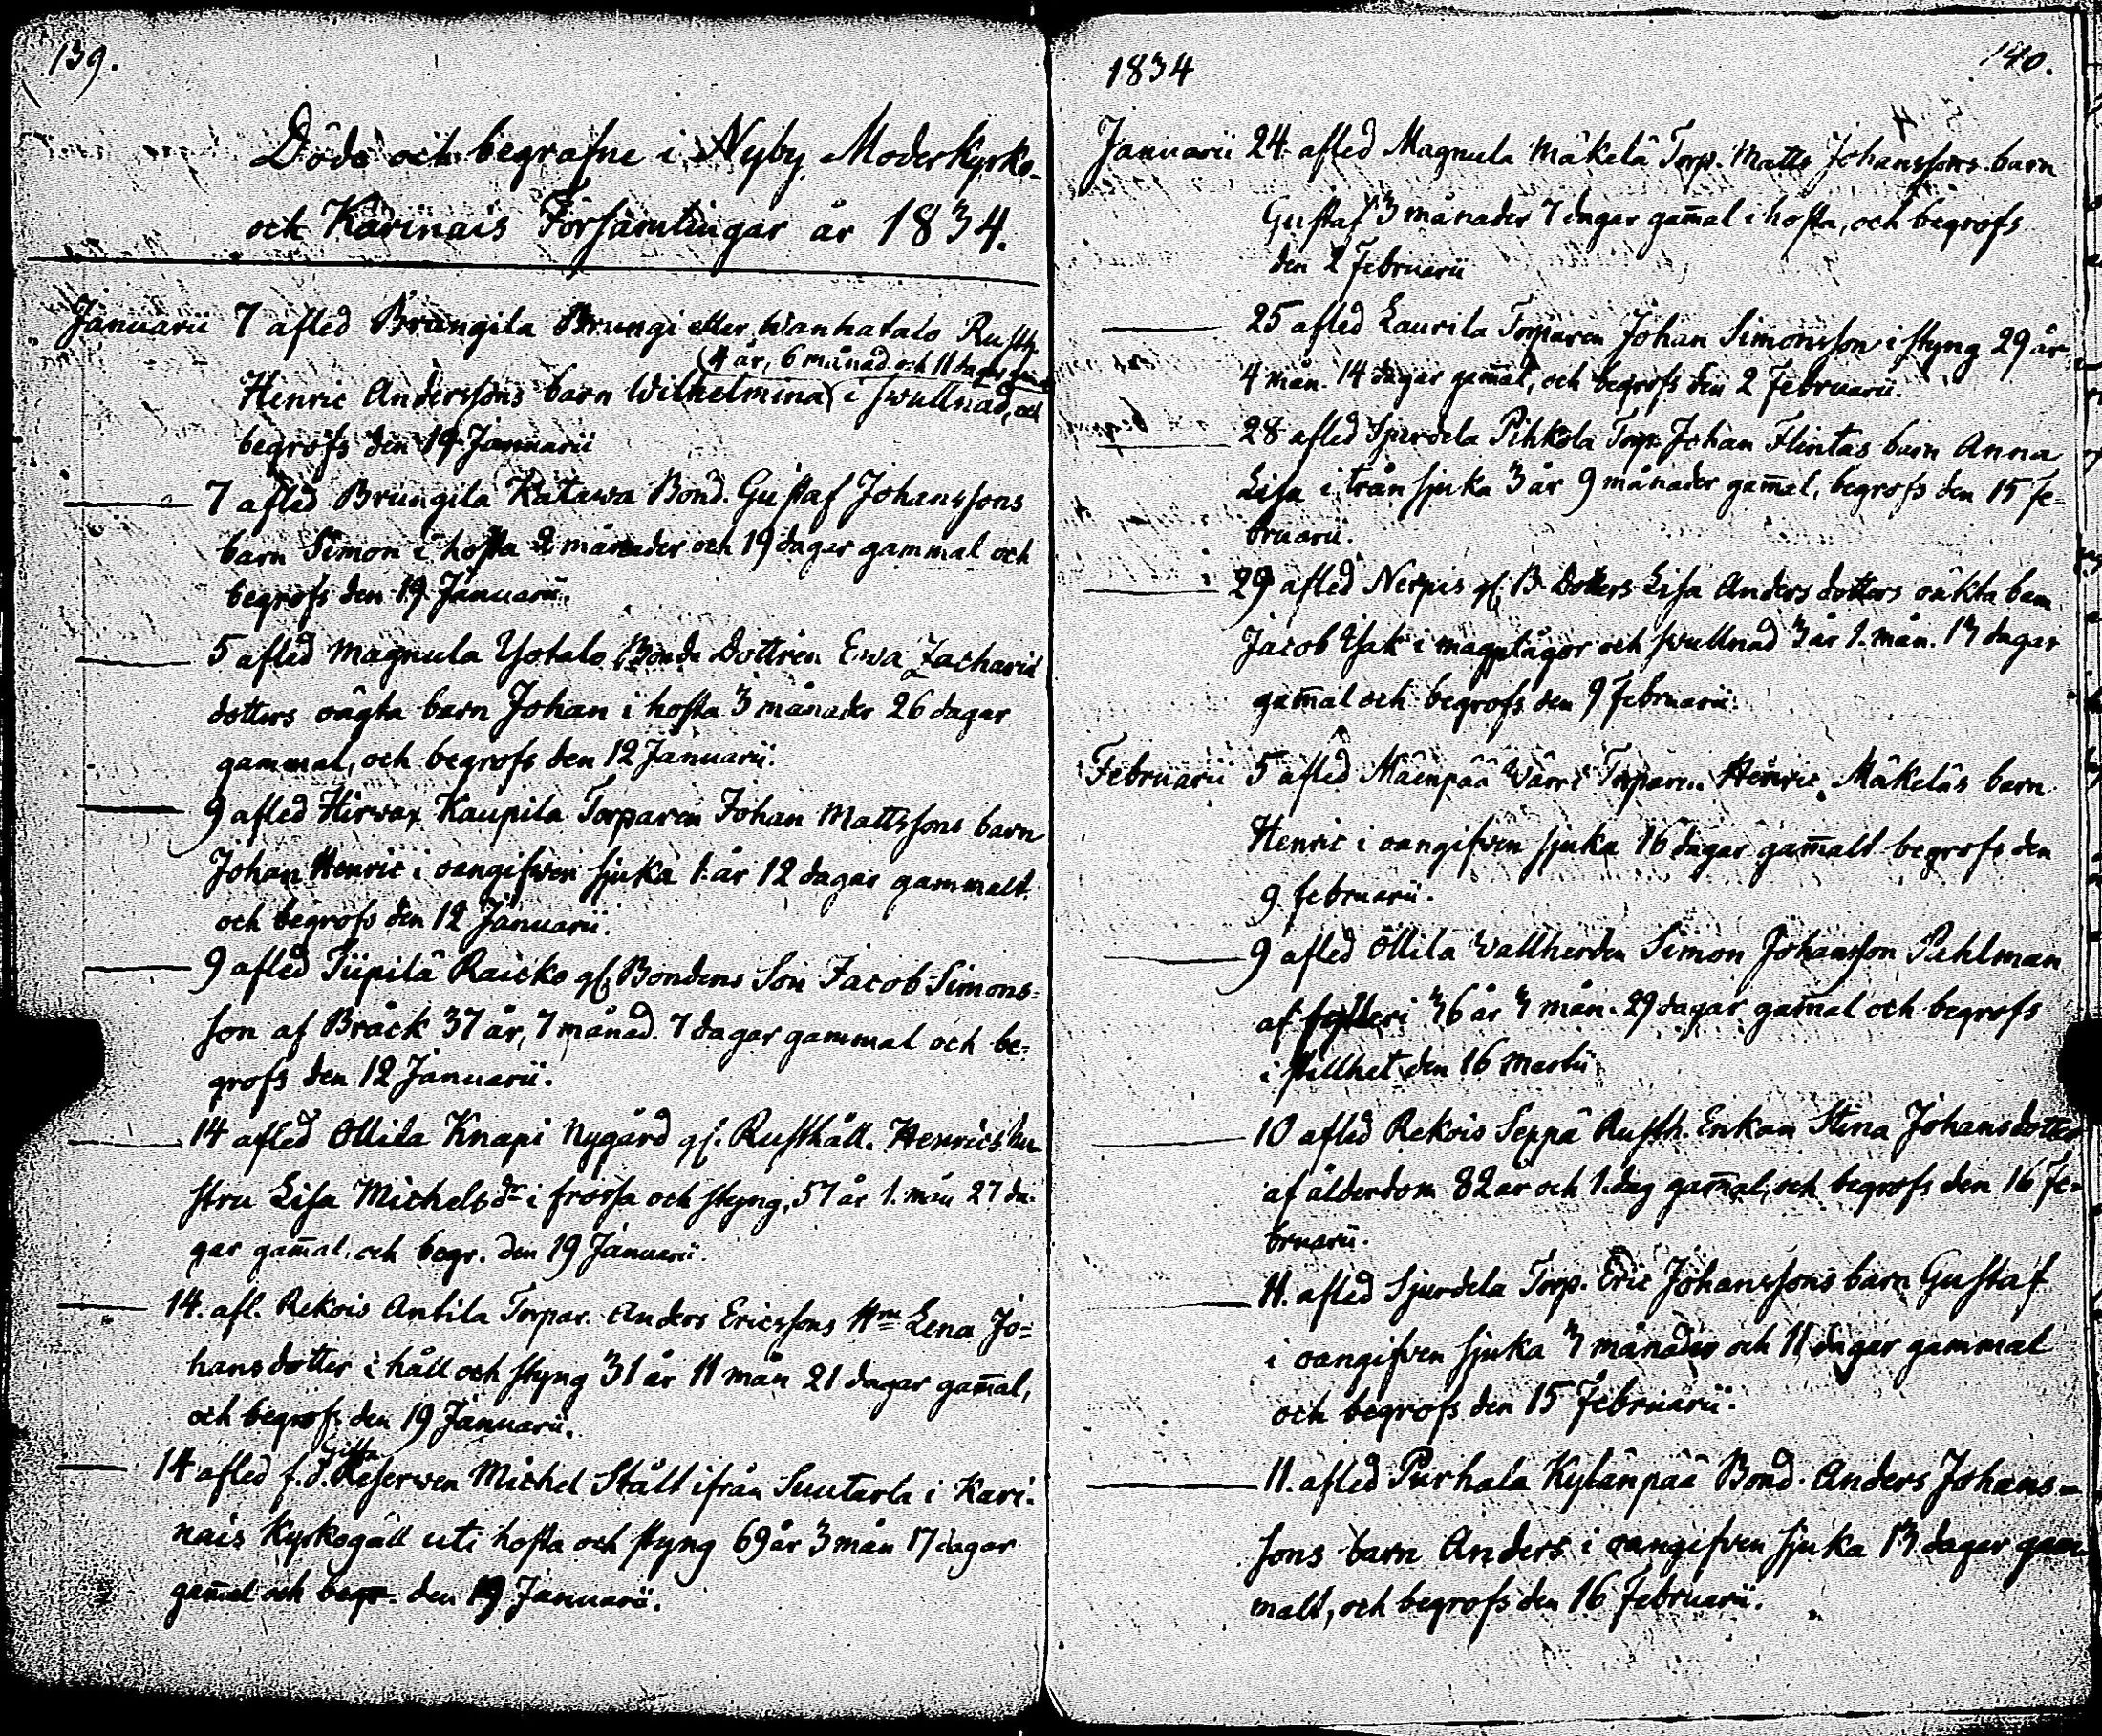 139.
Döde och begrafne i Nyby Moderkyrko-
och Karinais Församlingar år 1834.
Januarii 7 afled Brungila Brungi eller Wanhatalo Rusth.
(4 år, 6 månad. och 11 dagar gammal
Henric Anderssons barn Wilhelmina i swullnad, och
begrofs den 19 Januarii
7 afled Brungila Katawa Bond. Gustaf Johanssons
barn Simon i hosta 2 månader och 19 dagar gammal och
begrofs den 19 Januarii.
5 afled Magnula Yotalo Bonde Dottren Ewa Zacharie
dotters oägta barn Johan i hosta 3 månader 26 dagar
gammal, och begrofs den 12 Januarii.
9 afled Hirwax Kaupila Torparen Johan Mattssons barn
Johan Henric i oangifwen sjuka 1. år 12 dagar gammalt
och begrofs den 12 Januarii.
9 afled Tiipilä Raicko gl. Bondens Son Jacob Simons=
son af Bråck 37 år, 7 månad. 7 dagar gammal och be=
grofs den 12 Januarii.
14 afled Ollila Knapi Nygård gl. Rusthåll. Henrics hu-
stru Lisa Michels dr i frossa och styng, 57 år 1. mån 27 da-
gar gam̅al, och begr. den 19 Januarii.
14. afl. Rekois Antila Torpar. Anders Ericssons Hru Lena Jo=
hansdotter i håll och styng 31 år 11 mån 21 dagar gam̅al,
och begrofs den 19 Januarii.
14 afled f.d. Reserven Michel Stålt ifrån Suutarla i Kari-
nais Kyrkogäll uti hosta och styng 69 år 3 mån 17 dagar
gam̅al och begr. den 19 Januarii.
1834
140.
Januarii 24 afled Magnula Mäkelä Torp. Matts Johanssons barn
Gustaf 3 månader 7 dagar gam̅al i hosta, och begrofs
den 2 Februarii
25 afled Laurila Torparen Johan Simonsson i styng 29 år
4 mån. 14 dagar gam̅al, och begrofs den 2 Februarii.
28 afled Sjurdela Pihkola Torp. Johan Flintas barn Anna
Lisa i trånsjuka 3 år 9 månader gam̅al, begrofs den 15 Fe=
bruarii.
29 afled Nerpis gl. B. Dotters Lisa Anders dotters oäkta barn
Jacob Isak i magplågor och swullnad 3 år 1. mån. 13 dagar
gam̅al och begrofs den 9 Februarii.
Februarii 5 afled Mäenpää Wärri Torparen Henric Mäkeläs barn
Henric i oangifven sjuka 16 dagar gam̅alt begrofs den
9 februarii.
9 afled Ollila Wallherden Simon Johansson Pahlman
af 36 år 3 mån. 29 dagar gam̅al och begrofs
i stillhet den 16 Martii
10 afled Rekois Seppä Rusth. Enkan Stina Johansdotter
af ålderdom 82 år och 1. dag gam̅al, och begrofs den 16 Fe=
bruarii.
11. afled Sjurdela Torp. Eric Johanssons barn Gustaf
i oangifven sjuka 3 månader och 11 dagar gammal
och begrofs den 15 Februarii.
11. afled Purhala Kylänpää Bond. Anders Johans=
sons barn Anders i oangifven sjuka 13 dagar gam-
malt, och begrofs den 16 Februarii.